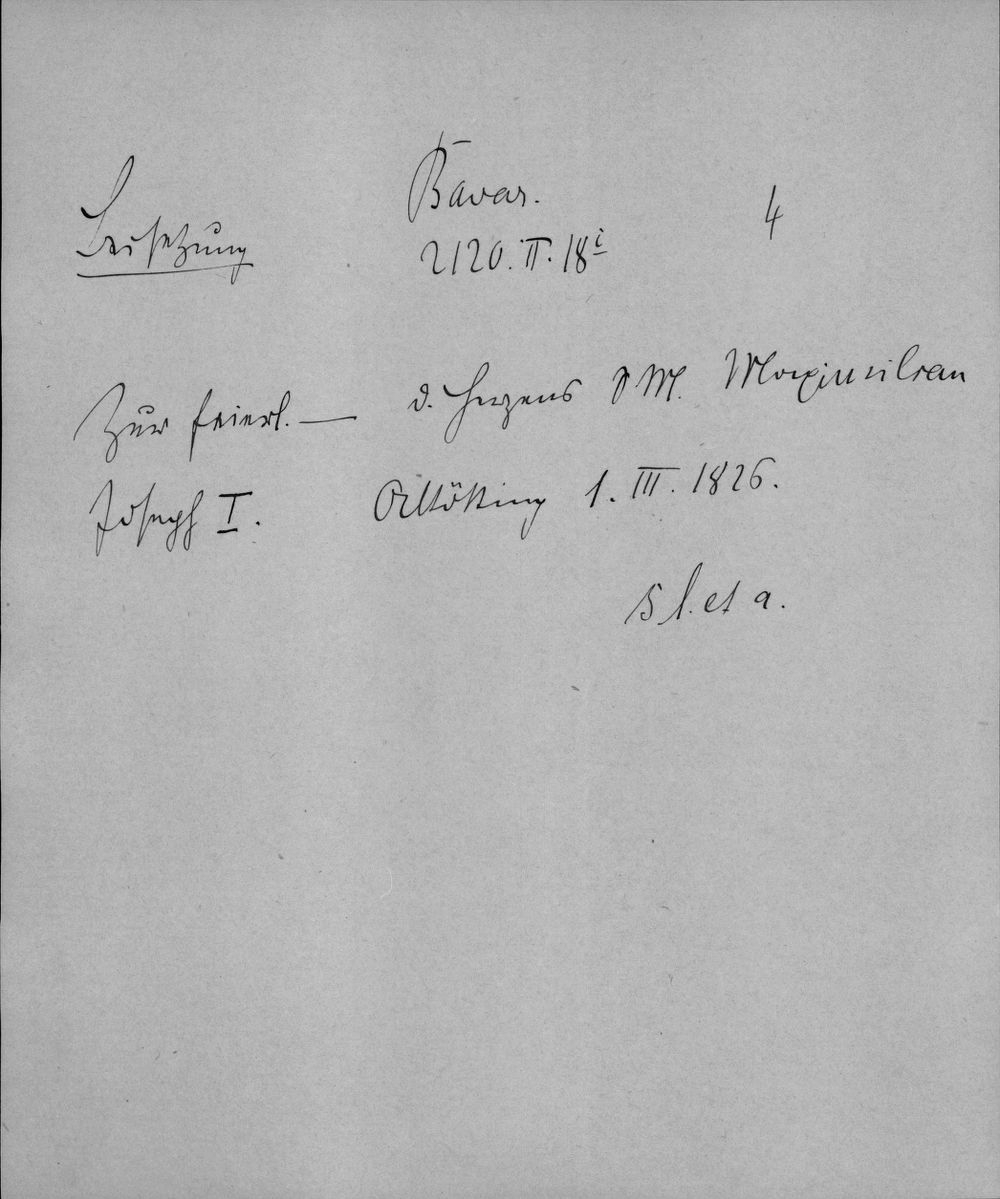 Bavar. 4
Beisetzung
2120. II. 18 i
Zur feierl. — d. Herzens S M. Maximilian
Joseph I. Altötting 1. III. 1826.
s l. et a.